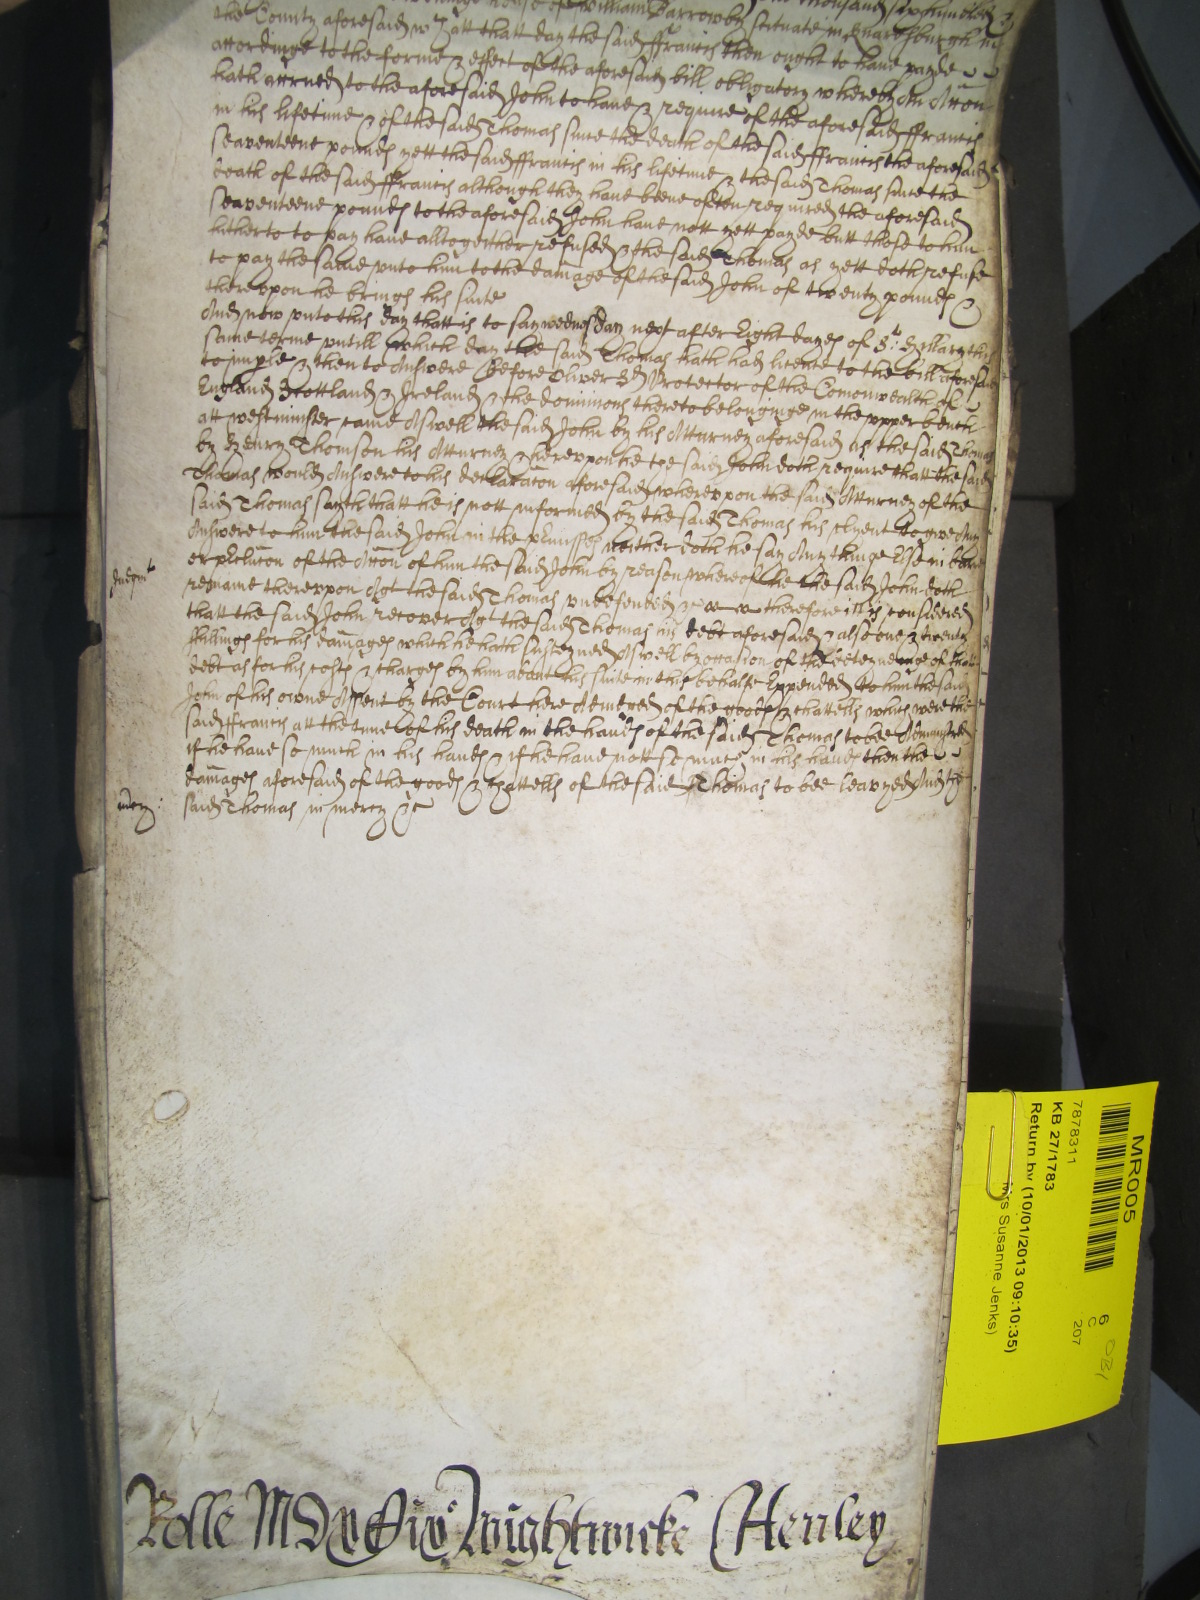 mansion house of William Barrowby scituate in Knaresburgh in
the County aforesaid w att that day the said ffrancis then ought to have payde
accordinge to the forme & effect of the aforesaid bill obligatory whereby An Accon
hath accrued to the aforesaid John to have & require of the aforesaid ffrancis
in his lifetime & of the said Thomas since the death of the said ffrancis the aforesaid
Seaventeene pounds yett the said ffrancis in his lifetime & the said Thomas since the
death of the said ffrancis although they have beene often required the aforesaid
Seaventeene pounds to the aforesaid John have nott yett payde butt those to him
hitherto to pay have alltogether refused & the said Thomas as yett doth refuse
to pay the same unto him to the damage of the said John of twenty pounds &
thereupon he brings his suite
And now unto this day thatt is to say wednesday next after Eight dayes of St Hyllary this
same terme untill which day the said Thomas hath had licence to the bill aforesaid
to imple & then to Answere Before Oliver Ld Protector of the Comonwealth of
England Scottland & Ireland & the dominions thereto belonginge in the upper bench
att westminster came Aswell the said John by his Atturney aforesaid as the said Thomas
by Henry Thomson his Atturney & hereupon he the said John doth require thatt the said
Thomas would Answere to his declaracon aforesaid whereupon the said Atturney of the
said Thomas sayth thatt he is nott informed by the said Thomas his clyent to give Any
Answere to him the said John in the premisses neither doth he say Any thinge Else in barre
or preclucon of the Accon of him the said John by reason whereof he the said John doth
Judgmt
remaine thereupon Agt the said Thomas undefended & therefore itt is considered
thatt the said John recover Agt the said Thomas his debt aforesaid & also one & twenty
shillings for his damages which he hath susteyned Aswell by occasion of the deteyneinge of thatt
debt as for his costs & charges by him about his suite in this behalfe Expended to him the said
John of his owne Assent by the Court here Adiudged of the goods & chattells which were the
said ffrancis att the time of his death in the hands of the said Thomas to bee Administred
if he have so much in his hands & if he have nott so much in his hands then the
damages aforesaid of the goods & chattells of the said Thomas to bee leavyed And the
mercy:
said Thomas in mercy &c
Rolle Wightwicke Henley
MR005
7878311
KB 27/1783
Return by (10/01/2013 09:10:35)
Mrs Susanne Jenks)
6
C
207